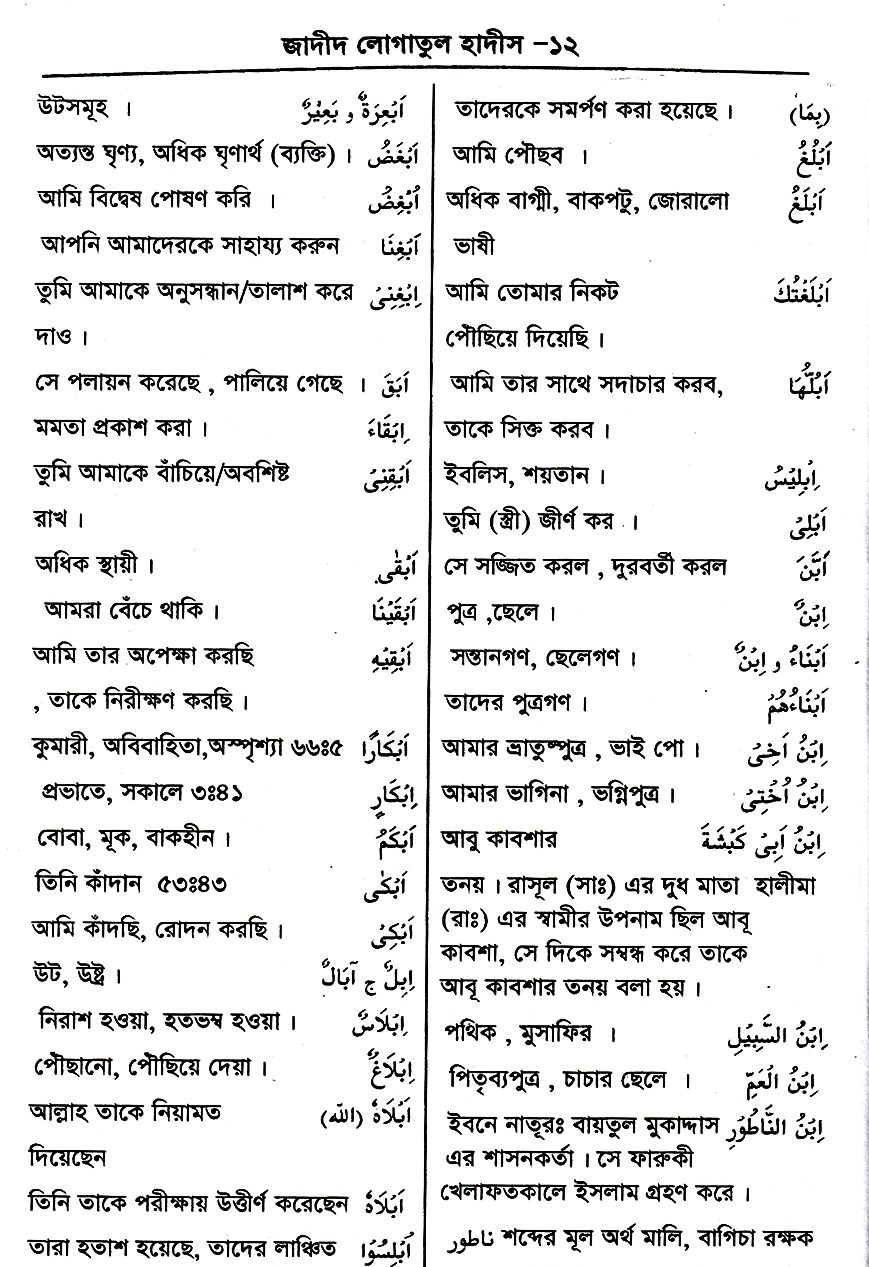 জাদীদ লোগাতুল হাদীস -১২
উটসমূহ । اَبْعِرَةٌ و بَعِيْرٌ
অত্যন্ত ঘৃণ্য, অধিক ঘৃণার্থ (ব্যক্তি) । اَبْغَضُ
আমি বিদ্বেষ পোষণ করি । اُبْغِضُ
আপনি আমাদেরকে সাহায্য করুন اَبْغِنَا
তুমি আমাকে অনুসন্ধান/তালাশ করে اِبْغِنِىْ
দাও ।
সে পলায়ন করেছে , পালিয়ে গেছে । اَبَقَ
মমতা প্রকাশ করা । اِبْقَاءَ
তুমি আমাকে বাঁচিয়ে/অবশিষ্ট اَبْقِنِىْ
রাখ ।
অধিক স্থায়ী । اَبْقٰى
আমরা বেঁচে থাকি । اَبْقَيْنَا
আমি তার অপেক্ষা করছি اَبْقِيْهِ
, তাকে নিরীক্ষণ করছি ।
কুমারী, অবিবাহিতা,অস্পৃশ্যা ৬৬ঃ৫ اَبْكَارًا
প্রভাতে, সকালে ৩ঃ৪১ اِبْكَارِ
বোবা, মূক, বাকহীন । اَبْكَمُ
তিনি কাঁদান ৫৩ঃ৪৩ اَبْكٰى
আমি কাঁদছি, রোদন করছি । اَبْكِىْ
উট, উষ্ট্র । اِبِلٌ ج آبَالٌ
নিরাশ হওয়া, হতভম্ব হওয়া । اِبْلَاسٌ
পৌছানো, পৌঁছিয়ে দেয়া । اِبْلَاغٌ
আল্লাহ তাকে নিয়ামত اَبْلَاهُ (الله)
দিয়েছেন
তিনি তাকে পরীক্ষায় উত্তীর্ণ করেছেন اَبْلَاهُ
তারা হতাশ হয়েছে, তাদের লাঞ্চিত اُبْلِسُوْا
তাদেরকে সমর্পণ করা হয়েছে । (بِمَا)
আমি পৌছব । اَبْلُغُ
অধিক বাগ্মী, বাকপটু, জোরালো اَبْلَغُ
ভাষী
আমি তোমার নিকট اَبْلَغْتُكَ
পৌঁছিয়ে দিয়েছি ।
আমি তার সাথে সদাচার করব, اَبُلُّهَا
তাকে সিক্ত করব ।
ইবলিস, শয়তান । اِبْلِيْسُ
তুমি (স্ত্রী) জীর্ণ কর । اَبْلِىْ
সে সজ্জিত করল , দুরবর্তী করল اَبَّنَ
পুত্র ,ছেলে । اِبْنٌ
সন্তানগণ, ছেলেগণ । اَبْنَاءُ و اِبْنٌ
তাদের পুত্রগণ । اَبْنَاءُهُمْ
আমার ভ্রাতুষ্পুত্র , ভাই পো । اِبْنُ اَخِىْ
আমার ভাগিনা , ভগ্নিপুত্র । اِبْنُ اُخْتِىْ
আবু কাবশার اِبْنُ اَبِىْ كَبْشَةَ
তনয় । রাসূল (সাঃ) এর দুধ মাতা হালীমা
(রাঃ) এর স্বামীর উপনাম ছিল আবূ
কাবশা, সে দিকে সম্বন্ধ করে তাকে
আবূ কাবশার তনয় বলা হয় ।
পথিক , মুসাফির । اِبْنُ السَّبِيْلِ
পিতৃব্যপুত্র , চাচার ছেলে । اِبْنُ الْعَمِّ
ইবনে নাতূরঃ বায়তুল মুকাদ্দাস اِبْنُ النَّاطُوْرِ
এর শাসনকর্তা । সে ফারুকী
খেলাফতকালে ইসলাম গ্রহণ করে ।
ناطور শব্দের মূল অর্থ মালি, বাগিচা রক্ষক